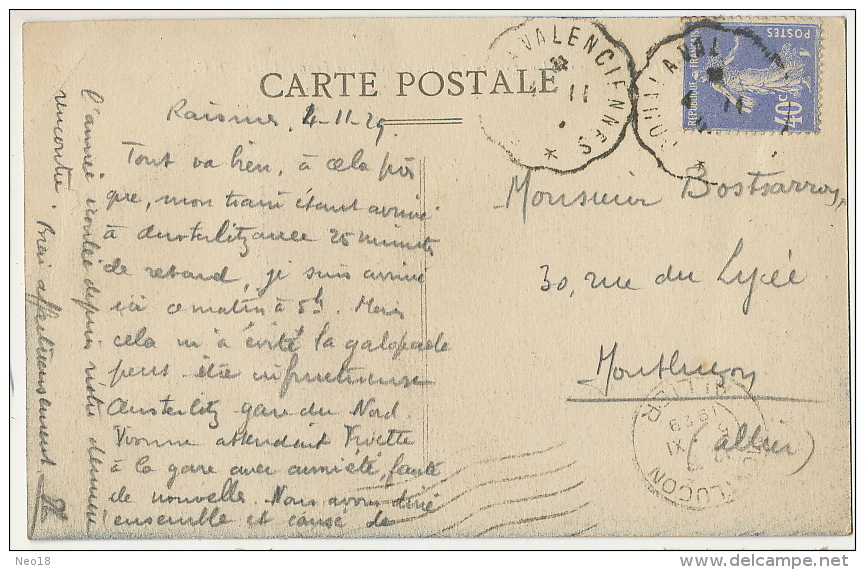 CARTE POSTALE
Raismes, 4-11-29
Tout va bien, à cela près
que, mon train étant arrivé
à Austerlitz avec 25 minutes
de retard, je suis arrivé
ici ce matin à 8h. Mais
cela m'a évité la galopade
peut-être infructueuse
Austerlitz gare du Nord.
Yvonne attendait
à la gare avec anxiété, faute
de nouvelle. Nous avons diné
ensemble et causé de
l'année écoulée depuis notre dernière
rencontre. Bien affectueusement.
Monsieur Bostsarron,
30, rue du Lycée
Montluçon
(Allier)
VALENCIENNES
4
11
REPUBLIQUE FRANCAISE
POSTES
40c
MONTLUÇON
ALLIER
5
XI
1929
Neo18
www.delcampe.net